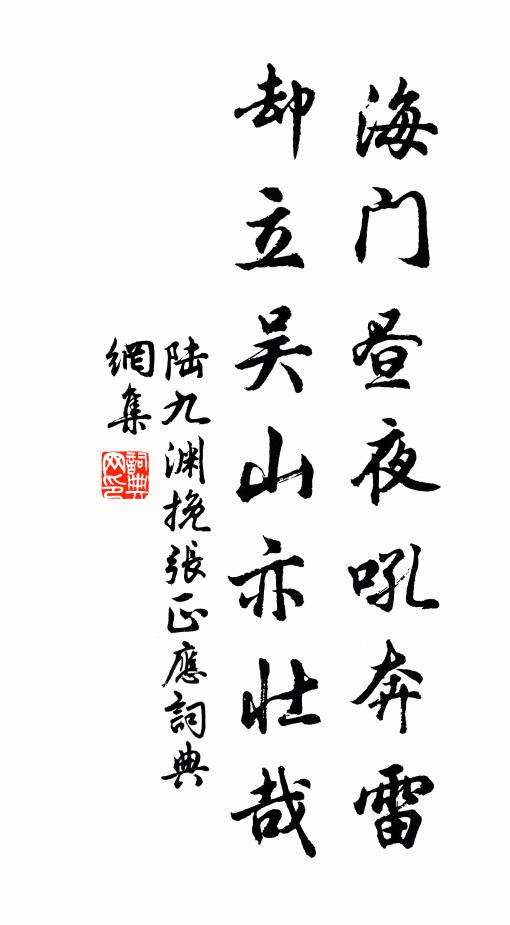 海门昼夜吼奔雷
却立吴山亦壮哉
陆九渊挽張正應詞典
網集
詞典网印